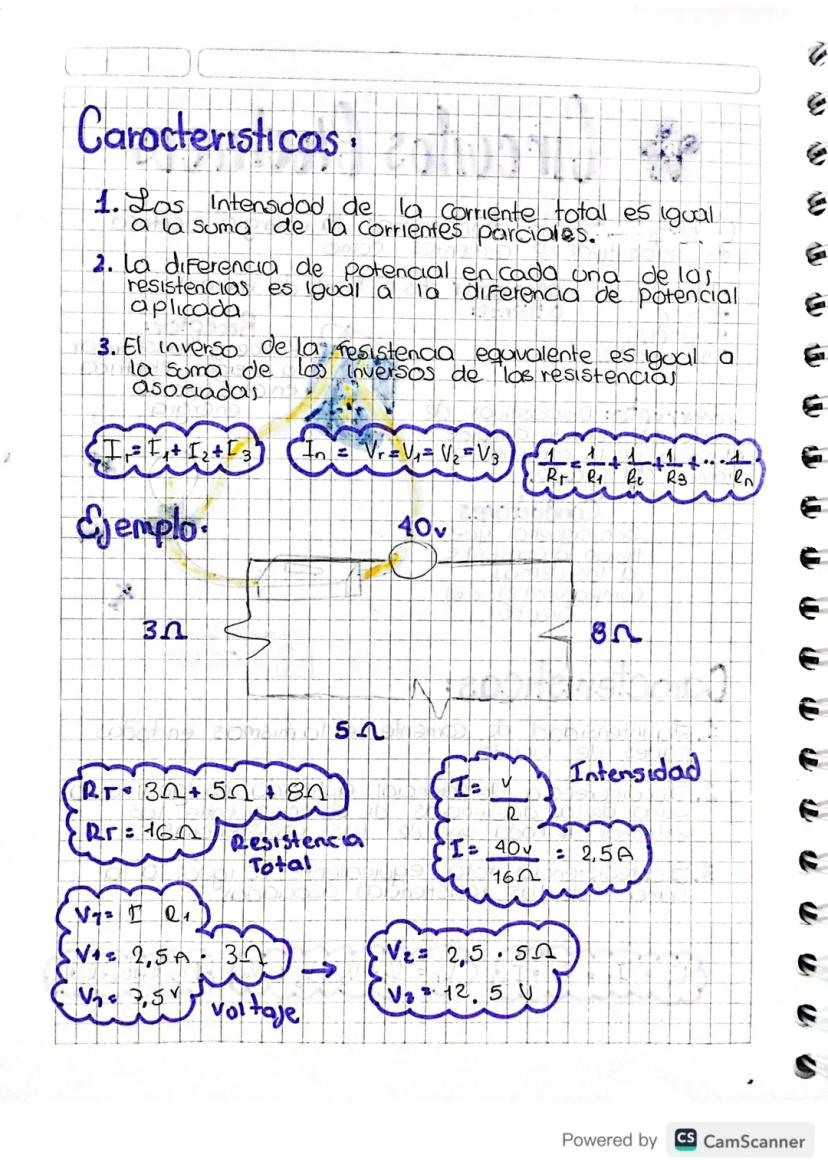 Caracteristicas.
1. Las Intensidad de la corriente total es igual
a la suma de la corrientes parciales.
2. La diferencia de potencial en cada una de las
resistencias es igual a la diferencia de potencial
aplicada
3. El inverso de la resistencia equivalente es igual a
la suma de los inversos de las resistencias
asociadas
Ir = I1 + I2 + I3
In = Vr = V1 = V2 = V3
1/Rr = 1/R1 + 1/R2 + 1/R3 + ... 1/Rn
Ejemplo.
40v
3Ω
8Ω
5Ω
RT = 3Ω + 5Ω + 8Ω
RT = 16Ω
Resistencia
Total
I = V/R
Intensidad
I = 40v/16Ω = 2,5A
V1 = I R1
V1 = 2,5A . 3Ω
V1 = 7,5V
Voltaje
→
V2 = 2,5 . 5Ω
V3 = 12.5 V
Powered by CS CamScanner